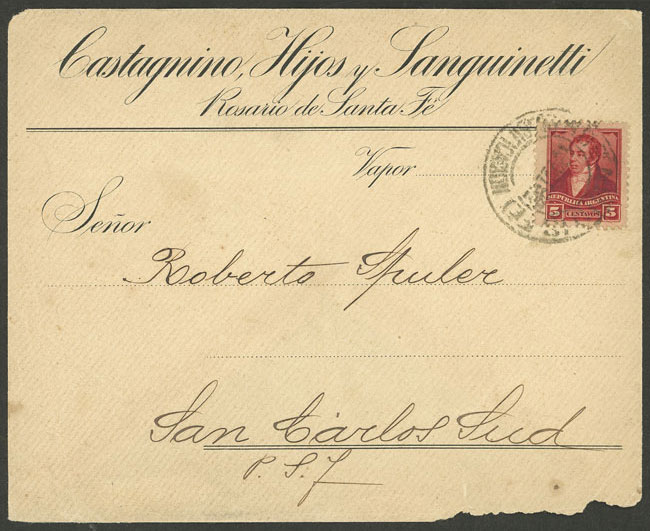 Castagnino, Hijos y Sanguinetti
Rosario de Santa Fé
Vapor
REPUBLICA ARGENTINA
5 CENTAVOS 5
Señor
Roberto Spuler
San Cárlos Sud
P. S. F.